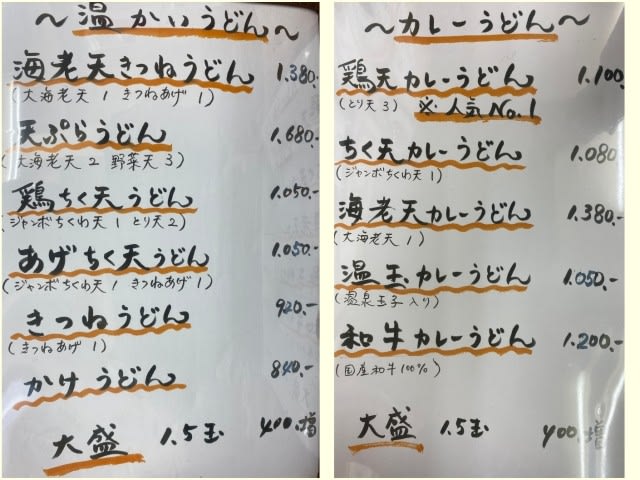 ～温かいうどん～
海老天きつねうどん 1.380.-
(大海老天 1 きつねあげ 1)
天ぷらうどん 1.680.-
(大海老天 2 野菜天 3)
鶏ちく天うどん 1.050.-
(ジャンボちくわ天 1 とり天 2)
あげちく天うどん 1.050.-
(ジャンボちくわ天 1 きつねあげ 1)
きつねうどん 920.-
(きつねあげ 1)
かけうどん 840.-
大盛 1.5玉 400.増
～カレーうどん～
鶏天カレーうどん 1.100.
(とり天 3) ※人気No.1
ちく天カレーうどん 1.080
(ジャンボちくわ天 1)
海老天カレーうどん 1.380.-
(大海老天 1)
温玉カレーうどん 1.050.-
(温泉玉子入り)
和牛カレーうどん 1.200.-
(国産和牛100%)
大盛 1.5玉 400.増